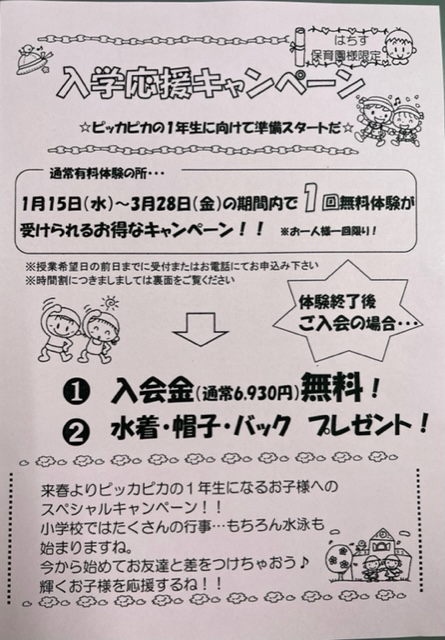 はちす
保育園様限定
入学応援キャンペーン
☆ピッカピカの１年生に向けて準備スタートだ☆
通常有料体験の所・・・
1月15日(水)～3月28日(金)の期間内で1回無料体験が
受けられるお得なキャンペーン！！ ※お一人様一回限り！
※授業希望日の前日までに受付またはお電話にてお申込み下さい
※時間割につきましましては裏面をご覧ください
体験終了後
ご入会の場合・・・
❶ 入会金(通常6,930円)無料！
❷ 水着・帽子・バック プレゼント！
来春よりピッカピカの１年生になるお子様への
スペシャルキャンペーン！！
小学校ではたくさんの行事…もちろん水泳も
始まりますね。
今から始めてお友達と差をつけちゃおう♪
輝くお子様を応援するね！！